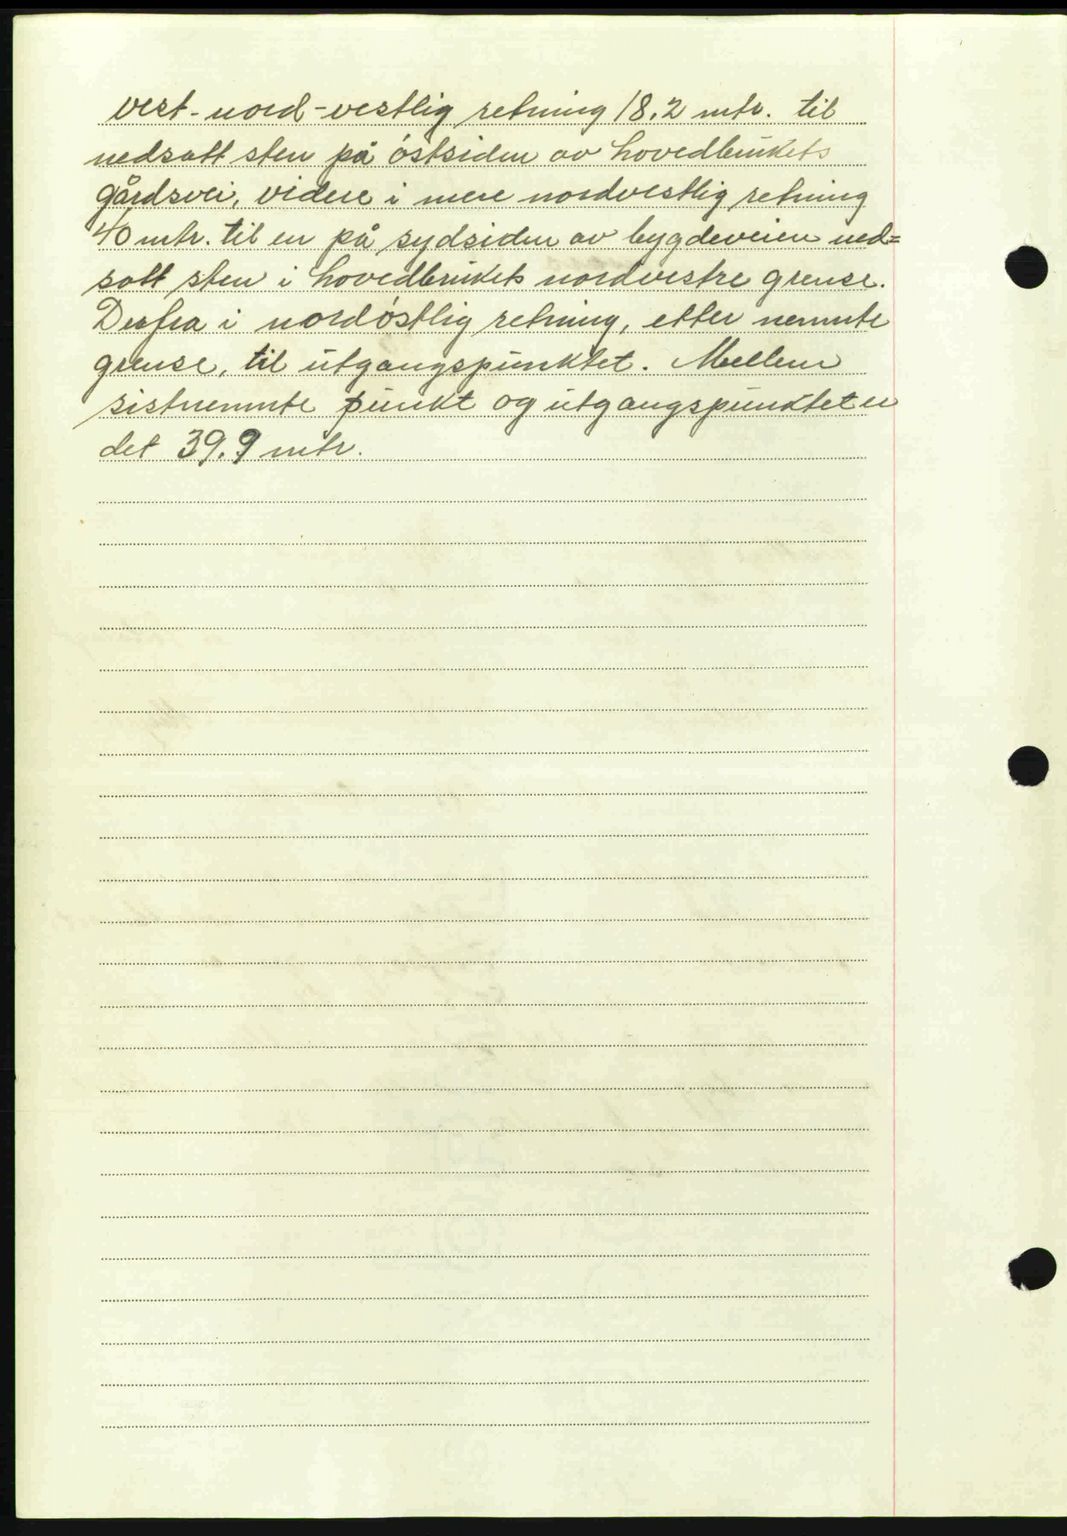 vest-nord-vestlig retning 18,2 mtr. til
nedsatt sten på østsiden av hovedbrukets
gårdsvei, videre i mere nordvestlig retning
40 mtr. til en på sydsiden av bygdeveien ned=
satt sten i hovedbrukets nordvestre grense.
Derfra i nordøstlig retning, efter nemnte
grense, til utgangspunktet. Mellem
sistnemnte punkt og utgangspunktet er
det 39,9 mtr.